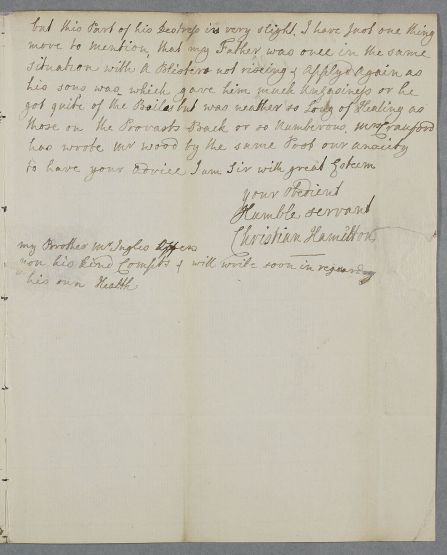 but this Part of his Destress is very slight, I have Just one thing
move to mention, that my Father was once in the same
situation with a Blister not riseing & applyd again as
his sons was which gave him much Uneasiness or he
got quite of the Boils, but was neather so Long of Healing as
those on the Provasts Back or so numberous, Mr Craufurd
has wrote Mr Wood by the same Post our anxiety
to have your advice I am Sir with great Esteem
your obedient
Humble servant
Christian Hamilton
my Brother Mr Ingles
you his kind Compts & will write soon in regard
his own Health